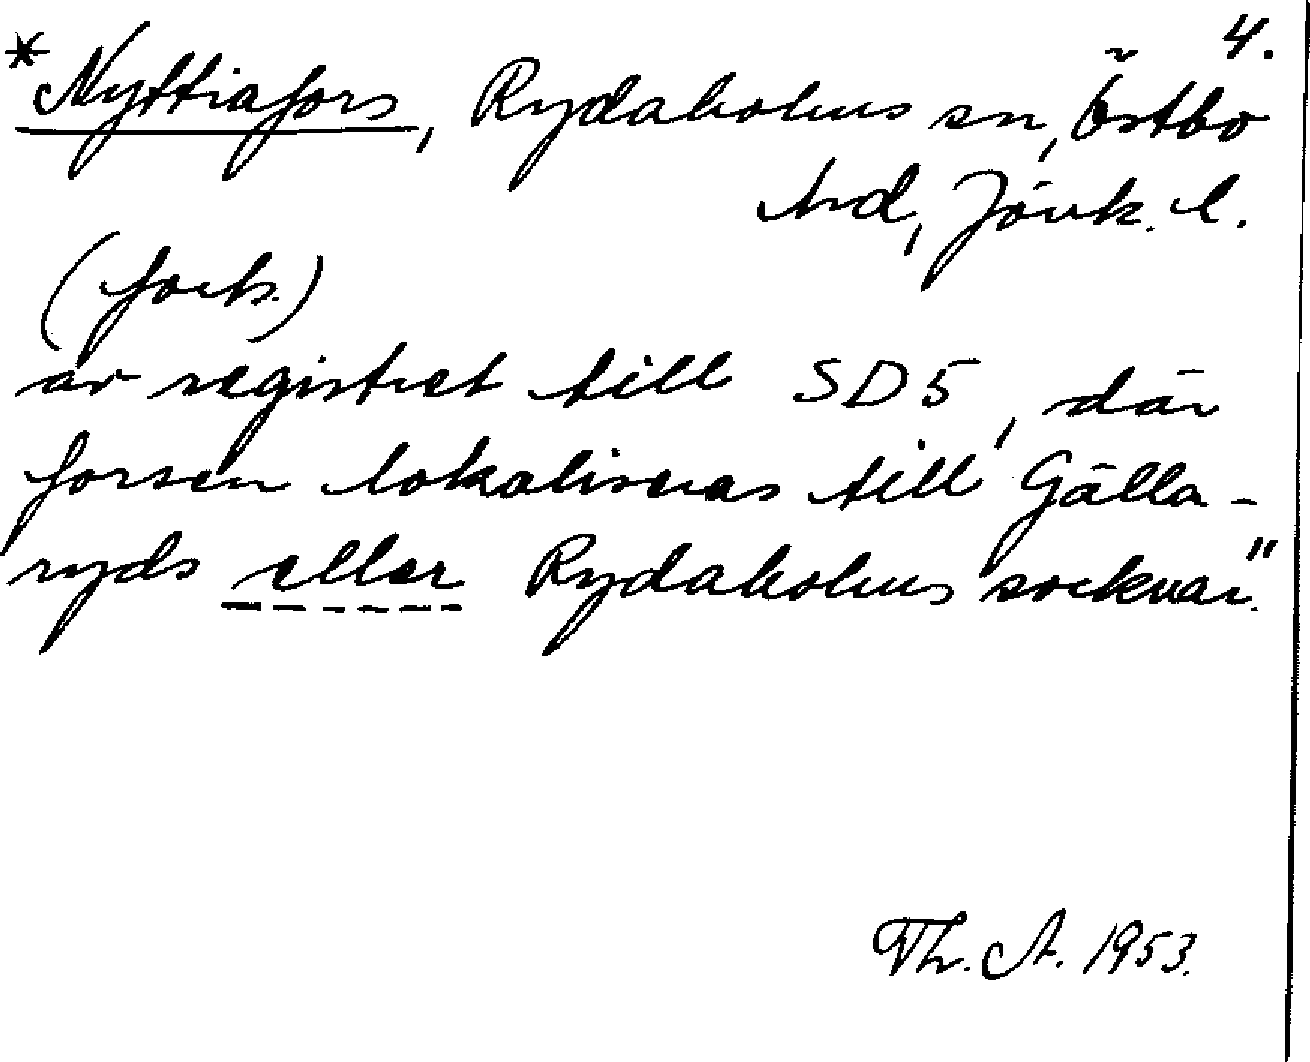 4.
*Nyttiafors, Rydaholms sn, Östbo
hd, Jönk. l.
(forts.)
av registret till SD5, där
forsen lokaliseras till Gälla-
ryds eller Rydaholms socknar."
Th. A. 1953.